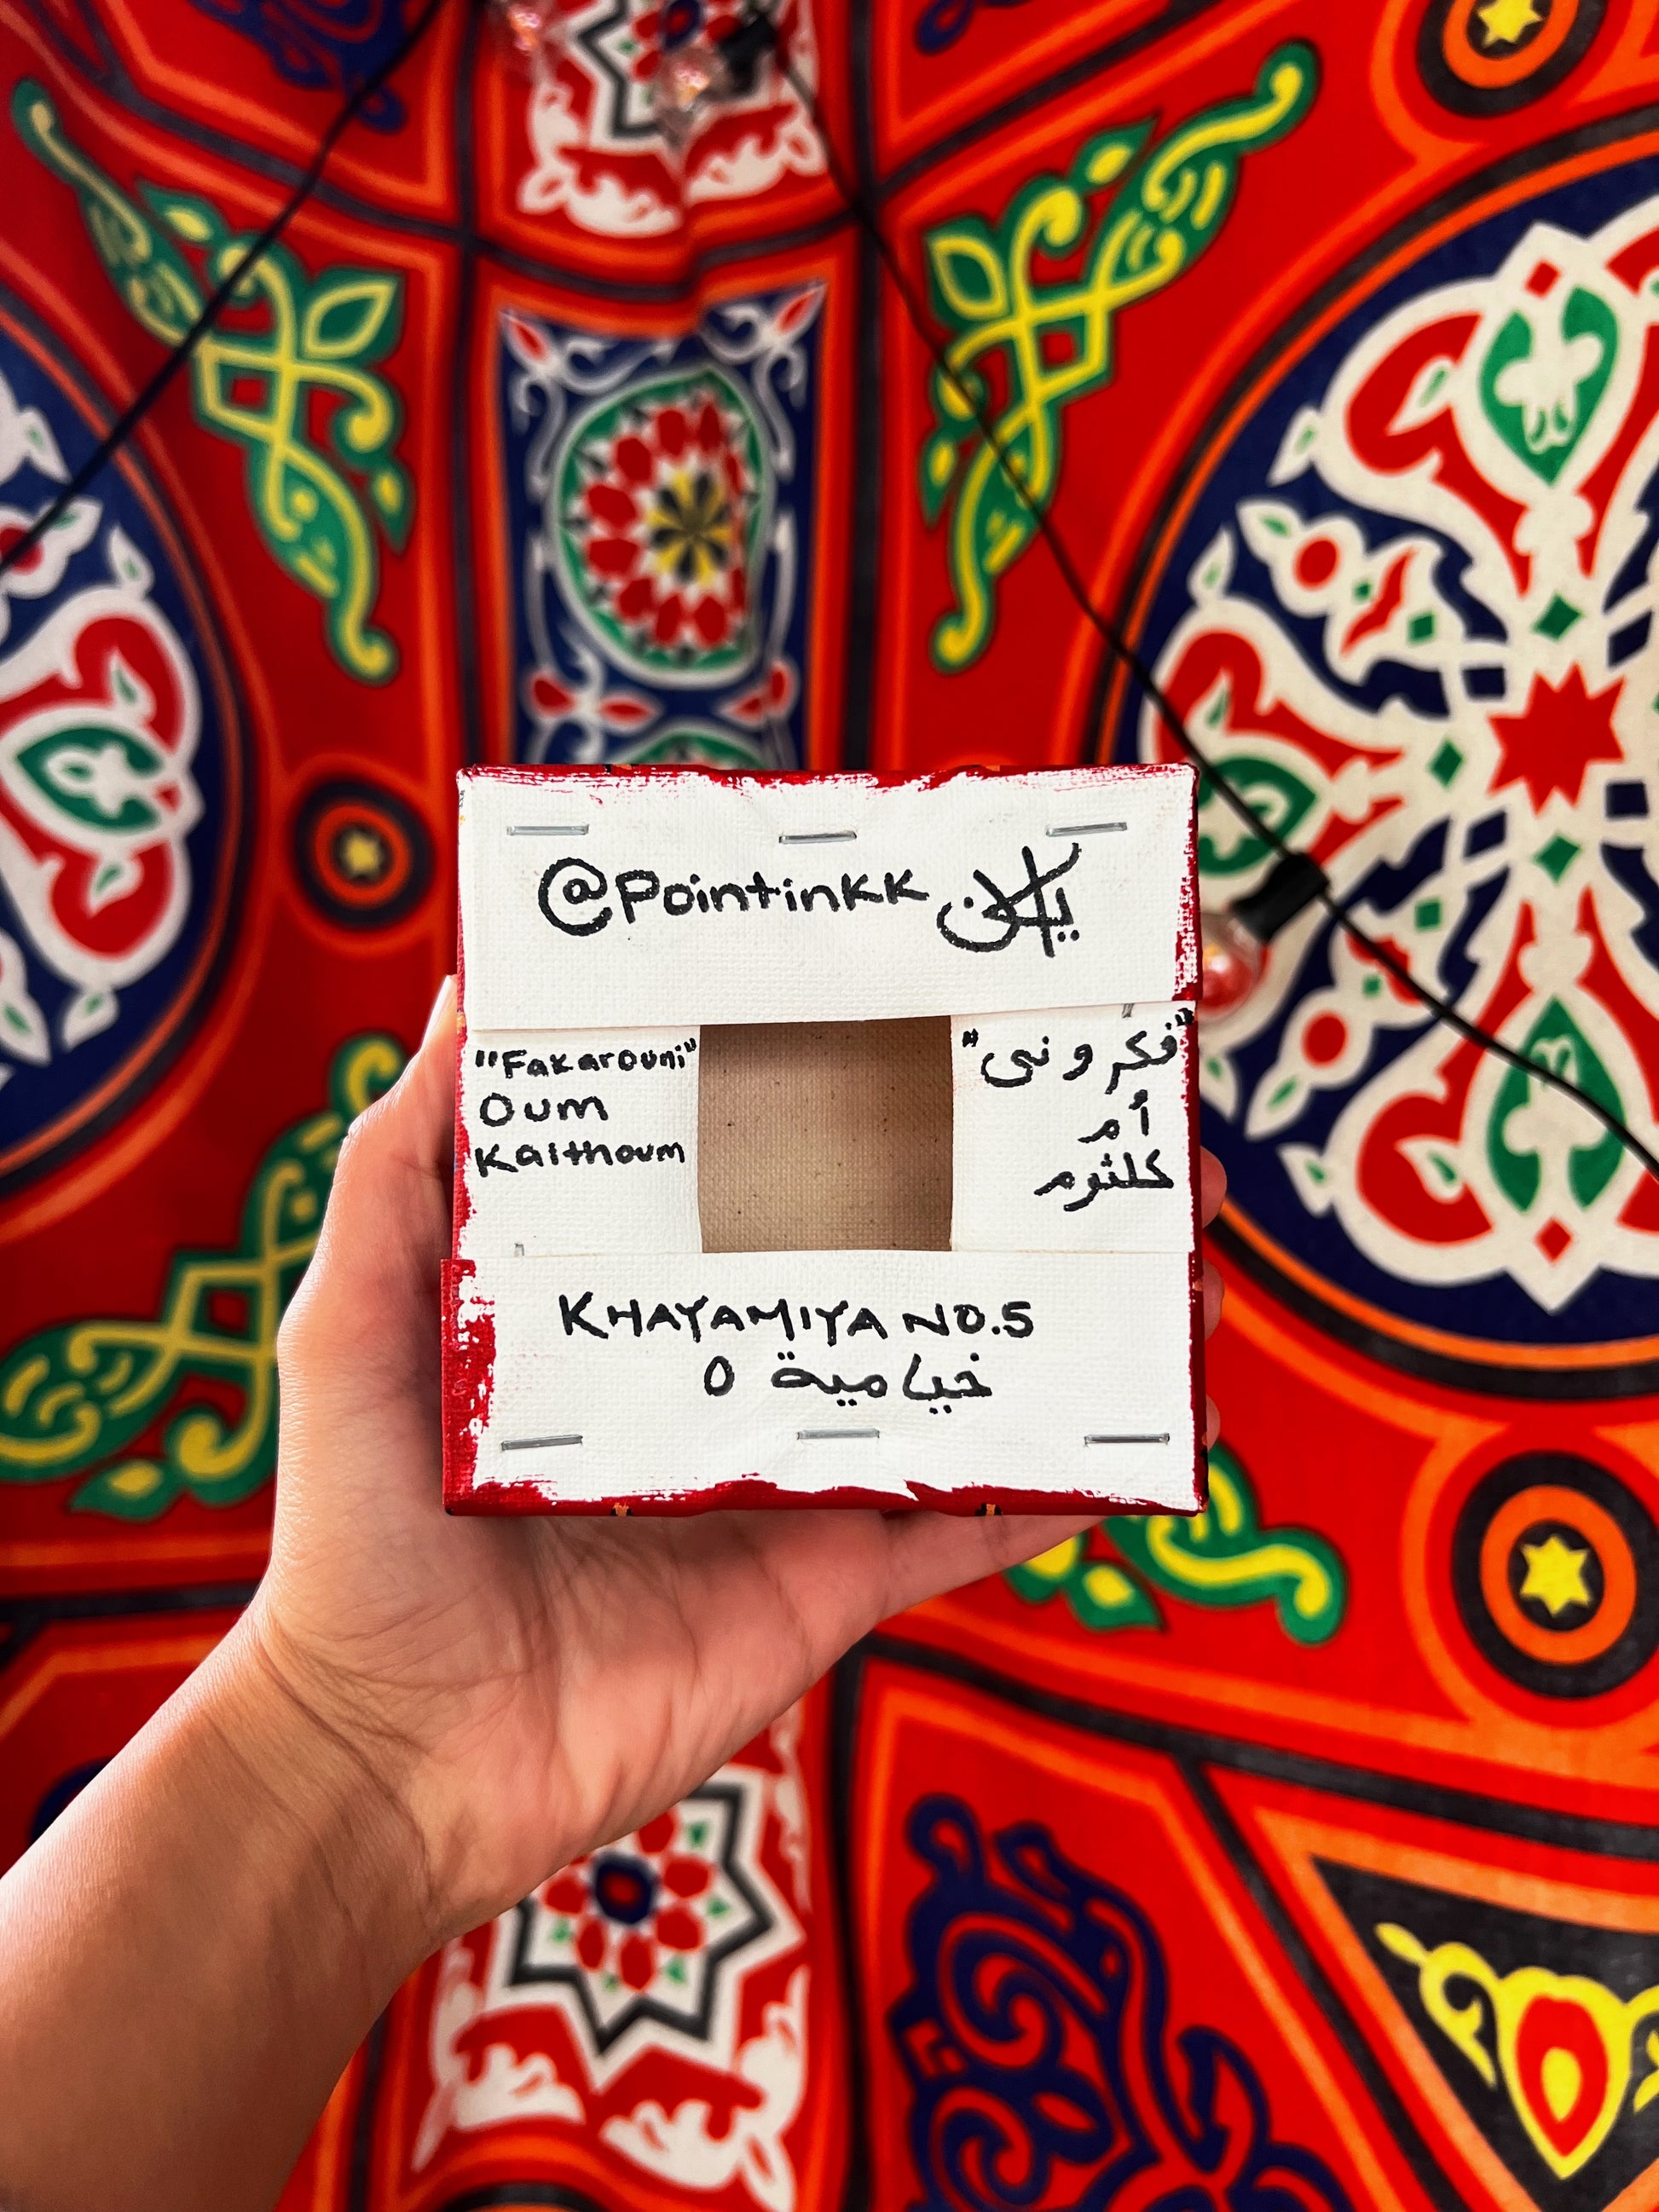 @Pointinkk
"Fakarouni"
Oum
Kalthoum
"فكروني"
أم
كلثوم
KHAYAMIYA NO.5
خيامية ٥